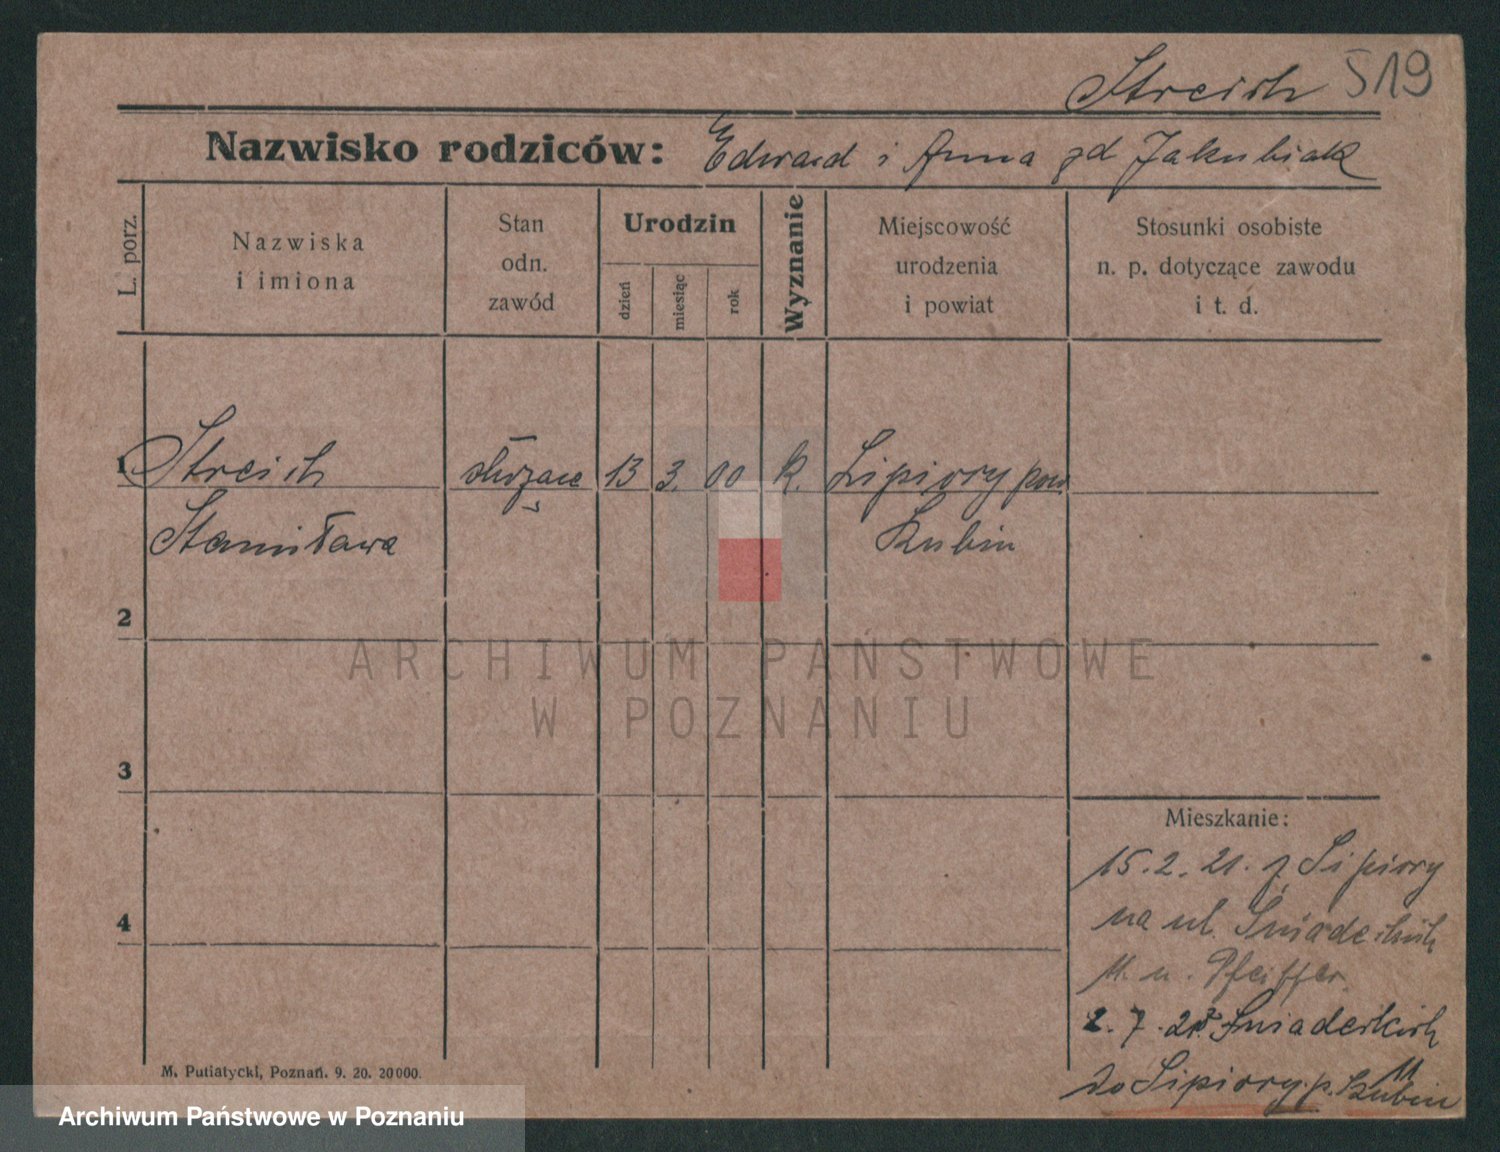 Streich 519
Nazwisko rodziców: Edward i Anna zd Jakubiak
L. porz.
Nazwiska
i imiona
Stan
odn.
zawód
Urodzin
dzień
miesiąc
rok
Wyznanie
Miejscowość
urodzenia
i powiat
Stosunki osobiste
n. p. dotyczące zawodu
i t. d.
1 Streich służące 13 3. 00 k. Lipiory pow.
Stanisława Kubin
2
ARCHIWUM PAŃSTWOWE
W POZNANIU
3
Mieszkanie:
15. 2. 21. z Lipiory
na ul. Śniadeckich
4
11. u. Pfeiffer.
2. 7. Śniadeckich
11
do Lipiory p. Kubin
M. Putiatycki, Poznań. 9. 20. 20000.
Archiwum Państwowe w Poznaniu